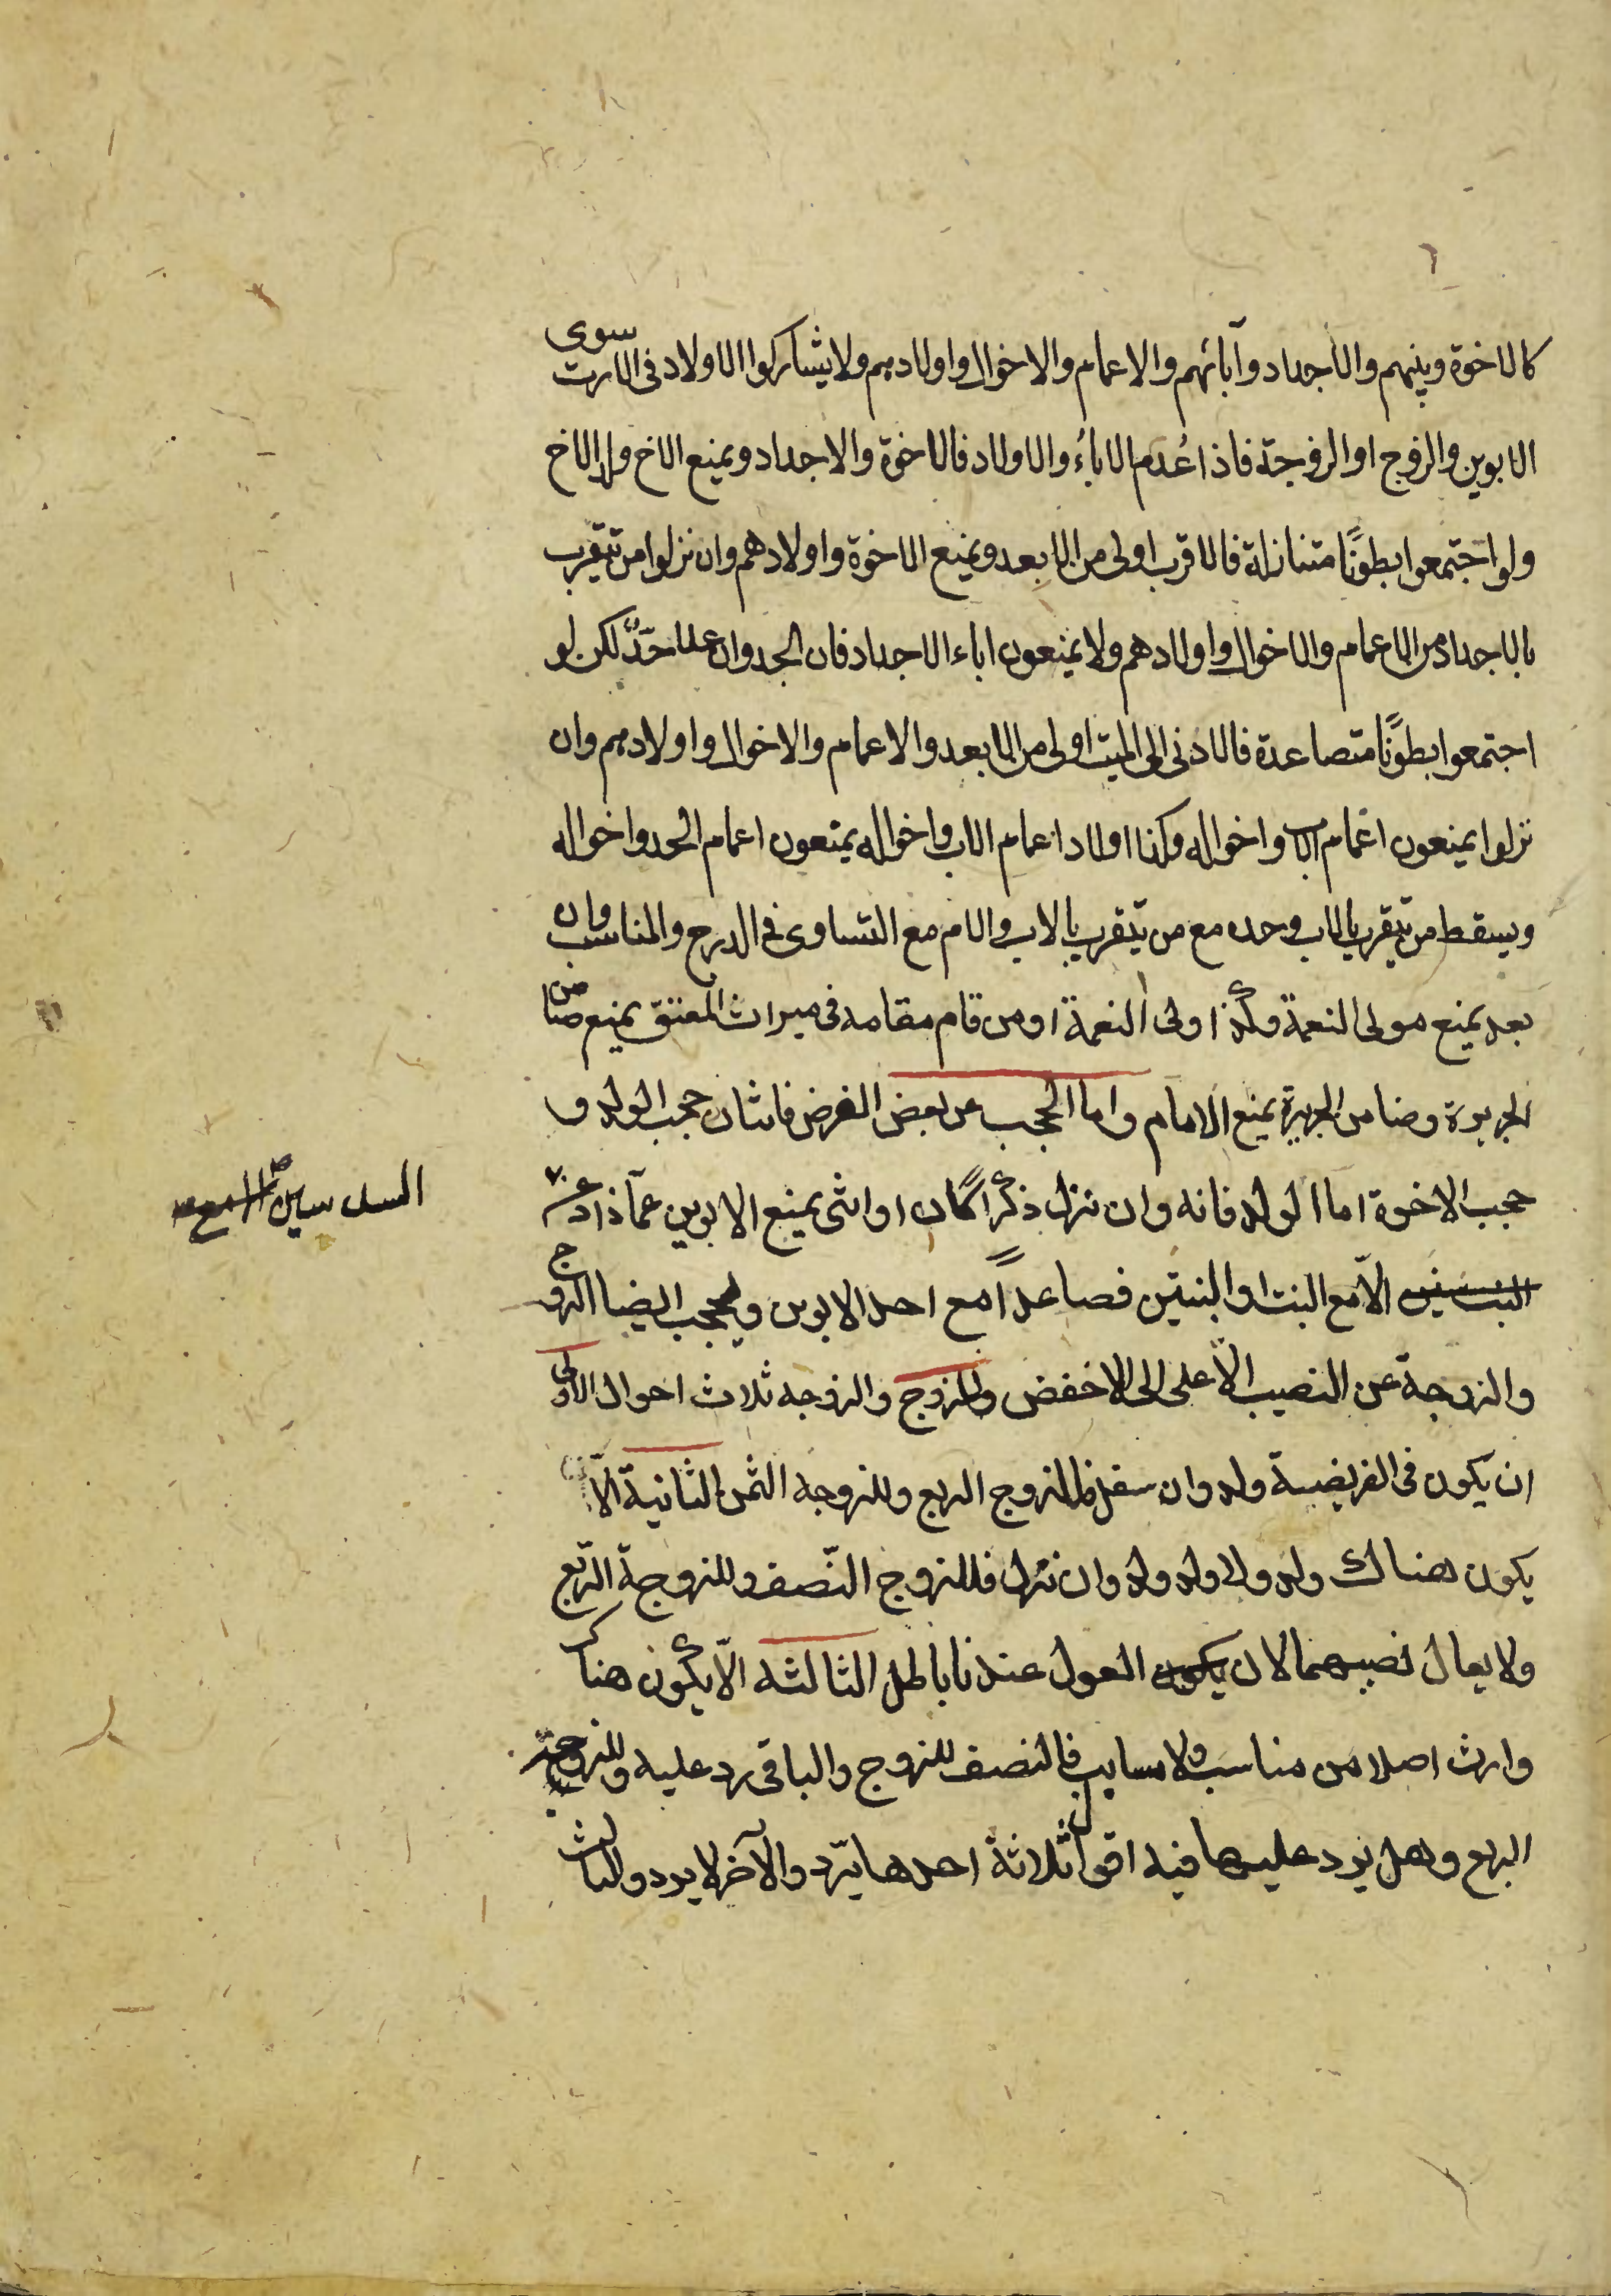 كالاخوة وبنيهم والاجداد وآبائهم والاعمام والاخوال واولادهم ولا يشاركوا الاولاد فى الارث سوى
الابوين والزوج او الزوجة فاذا عُدم الاباءُ والاولاد فالاخوة والاجداد ويمنع الاخ ولد الاخ
ولو اجتمعوا بطونًا متنازلة فالاقرب اولى من الابعد ويمنع الاخوة واولادهم وان نزلوا من تتقرب
بالاجداد من الاعمام والاخوال واولادهم ولا يمنعون اباء الاجداد فان الجد وان علا جدٌّ لكن لو
اجتمعوا بطونًا متصاعدة فالادنى الى الميت اولى من الابعد والاعمام والاخوال واولادهم وان
نزلوا يمنعون اعمام الاب واخواله وكذا اولاد اعمام الاب واخواله يمنعون اعمام الجد واخواله
ويسقط من تتقرب بالاب وحده مع من يتقرب بالاب والام مع التساوى فى الدرج والمناسب وان
بعد يمنع مولى النعمة وكذا ولى النعمة او من قام مقامه فى ميراث المعتق يمنع ضامن
الجريرة وضامن الجريرة يمنع الامام واما الحجب عن بعض الفرض فاثنان حجب الولد و
حجب الاخوة اما الولد فانه وان نزل ذكرًا كان او انثى يمنع الابوين عمّا زاد عن
السدسين
الّا مع البنت او البنتين فصاعدًا مع احد الابوين ويحجب ايضا الزوج
والزوجة عن النصيب الأعلى الى الاخفض وللزوج والزوجه ثلاث احوال الاولى
ان يكون فى الفريضة ولد وان سفل فللزوج الربع وللزوجه الثمن الثانية الّا
يكون هناك ولد ولا ولد ولد وان نزل فللزوج النّصف وللزوجة الرّبع
ولا يعال نصيبهما لان العول عندنا باطل الثالثه الّا يكون هناك
وارث اصلا من مناسب ولا مسابب فالنصف للزوج والباقى رد عليه وللزوجة
الربع وهل يرد عليها فيه اقوال ثلاثة احدها يرّد والآخر لا يرد والثالث